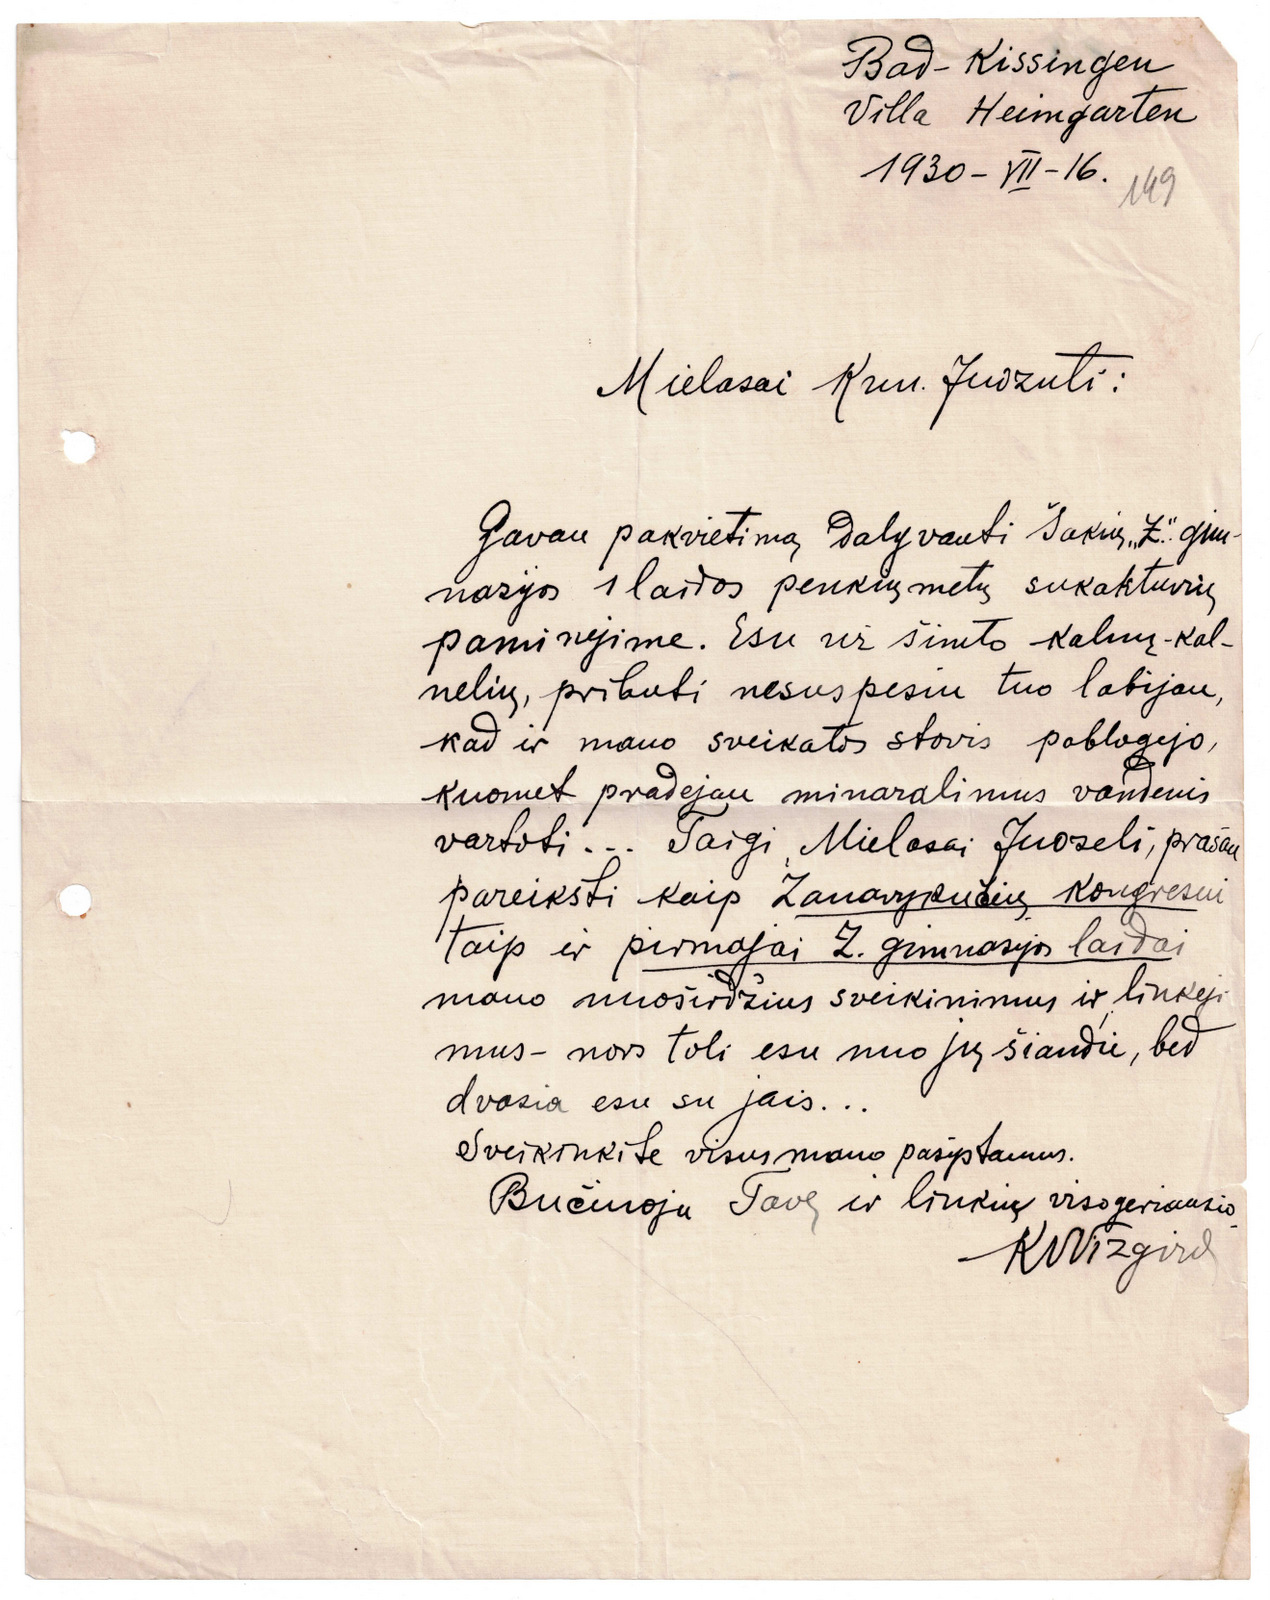 Bad-Kissingen
Villa Heimgarten
1930-VII-16.
149
Mielasai Kun. Juozuti:
Gavau pakvietimą dalyvauti Šakių „Ž." gim-
nazijos 1 laidos penkių metų sukaktuvių
paminėjime. Esu už šimto kalnų-kal-
nelių, pributi nesuspesiu tuo labijau,
kad ir mano sveikatos stovis pablogėjo,
kuomet pradėjau minaralinius vandenis
vartoti... Taigi, Mielasai Juozeli, prašau
pareikšti kaip Zanavykučių kongresui
taip ir pirmajai Ž. gimnazijos laidai
mano nuoširdžius sveikinimus ir linkėji
mus - nors toli esu nuo jų šiandie, bed
dvasia esu su jais...
Sveikinkite visus mano pažįstamus.
Bučiuoju Tavę ir linkių viso geriausio
- K Vizgird